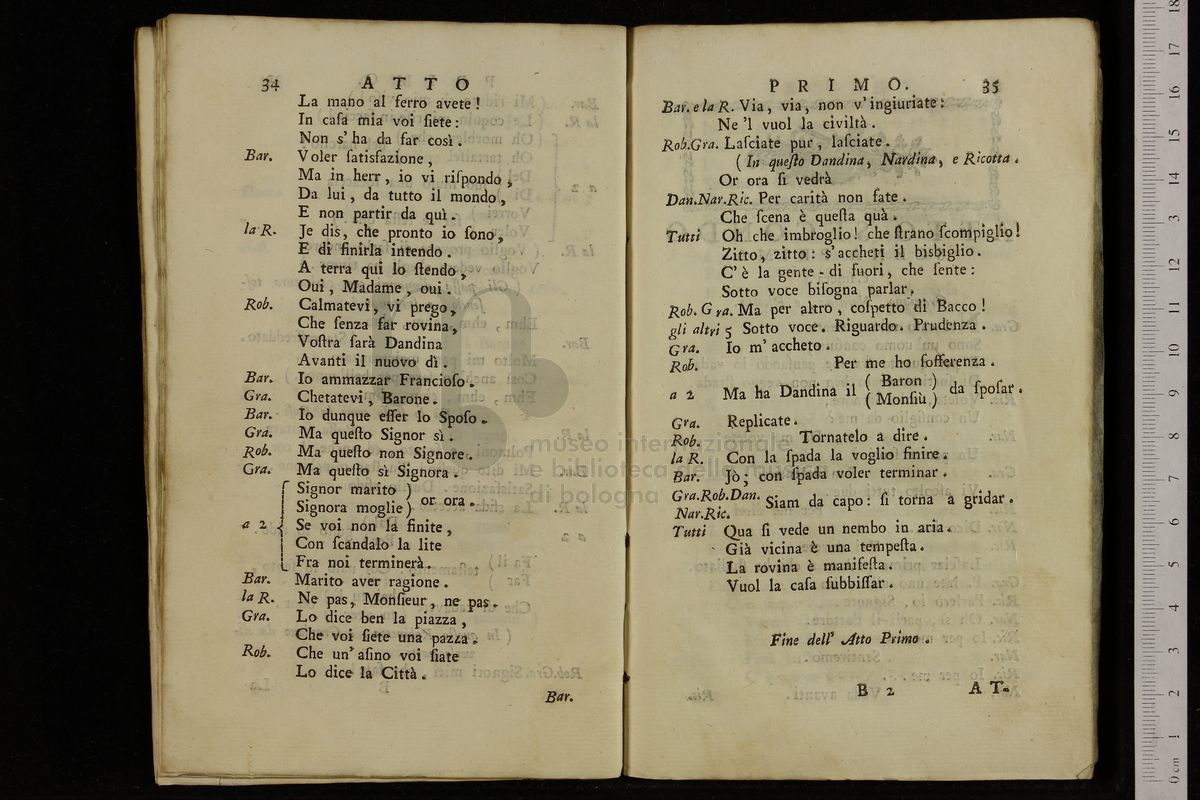 34 ATTO
La mano al ferro avete!
In caſa mia voi ſiete:
Non s' ha da far così.
Bar. Voler ſatisfazione,
Ma in herr, io vi riſpondo,
Da lui, da tutto il mondo,
E non partir da quì.
la R. Je dis, che pronto io ſono,
E di finirla intendo.
A terra quì lo ſtendo,
Oui, Madame, oui.
Rob. Calmatevi, vi prego,
Che ſenza far rovina,
Voſtra ſarà Dandina
Avanti il nuovo dì.
Bar. Io ammazzar Francioſo.
Gra. Chetatevi, Barone.
Bar. Io dunque eſſer lo Spoſo.
Gra. Ma queſto Signor sì.
Rob. Ma queſto non Signore.
Gra. Ma queſto sì Signora.
Signor marito )
Signora moglie) or ora.
a 2 Se voi non la finite,
Con ſcandalo la lite
Fra noi terminerà.
Bar. Marito aver ragione.
la R. Ne pas, Monſieur, ne pas.
Gra. Lo dice ben la piazza,
Che voi ſiete una pazza.
Rob. Che un' aſino voi ſiate
Lo dice la Città.
Bar.
PRIMO. 35
Bar. e la R. Via, via, non v' ingiuriate:
Ne 'l vuol la civiltà.
Rob. Gra. Laſciate pur, laſciate.
( In queſto Dandina, Nardina, e Ricotta.
Or ora ſi vedrà
Dan. Nar. Ric. Per carità non fate.
Che ſcena è queſta quà.
Tutti Oh che imbroglio! che ſtrano ſcompiglio!
Zitto, zitto: s' accheti il bisbiglio.
C' è la gente - di fuori, che ſente:
Sotto voce biſogna parlar.
Rob. Gra. Ma per altro, coſpetto di Bacco!
gli altri 5 Sotto voce. Riguardo. Prudenza.
Gra. Io m' accheto.
Rob. Per me ho ſofferenza.
a 2 Ma ha Dandina il ( Baron ) da ſpoſar.
( Monſiù )
Gra. Replicate.
Rob. Tornatelo a dire.
la R. Con la ſpada la voglio finire.
Bar. Jò; con ſpada voler terminar.
Gra. Rob. Dan. Siam da capo: ſi torna a gridar.
Nar. Ric.
Tutti Qua ſi vede un nembo in aria.
Già vicina è una tempeſta.
La rovina è manifeſta.
Vuol la caſa ſubbiſſar.
Fine dell' Atto Primo.
B 2 AT-
museo internazionale
e biblioteca della musica
di bologna
0 cm 1 2 3 4 5 6 7 8 9 10 11 12 13 14 15 16 17 18